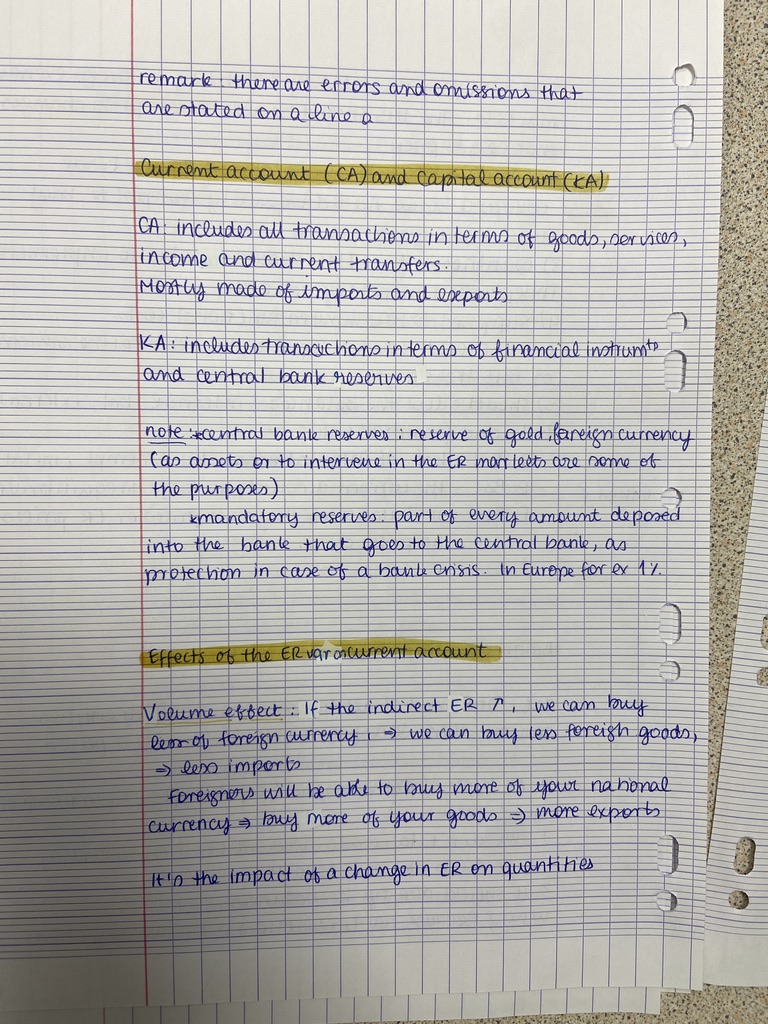 remark : there are errors and omissions that
are stated on a line a
Current account (CA) and Capital account (KA)
CA: includes all transactions in terms of goods, services,
income and current transfers.
Mostly made of imports and exports
KA: includes transactions in terms of financial instrumts
and central bank reserves
note : *central bank reserves : reserve of gold, foreign currency
(as assets or to intervene in the ER markets are some of
the purposes)
*mandatory reserves: part of every amount deposed
into the bank that goes to the central bank, as
protection in case of a bank crisis. In Europe for ex 1%.
Effects of the ER var on current account
Volume effect : If the indirect ER ↗, we can buy
less of foreign currency, ⇒ we can buy less foreign goods,
⇒ less imports
foreigners will be able to buy more of your national
currency ⇒ buy more of your goods ⇒ more exports
It's the impact of a change in ER on quantities